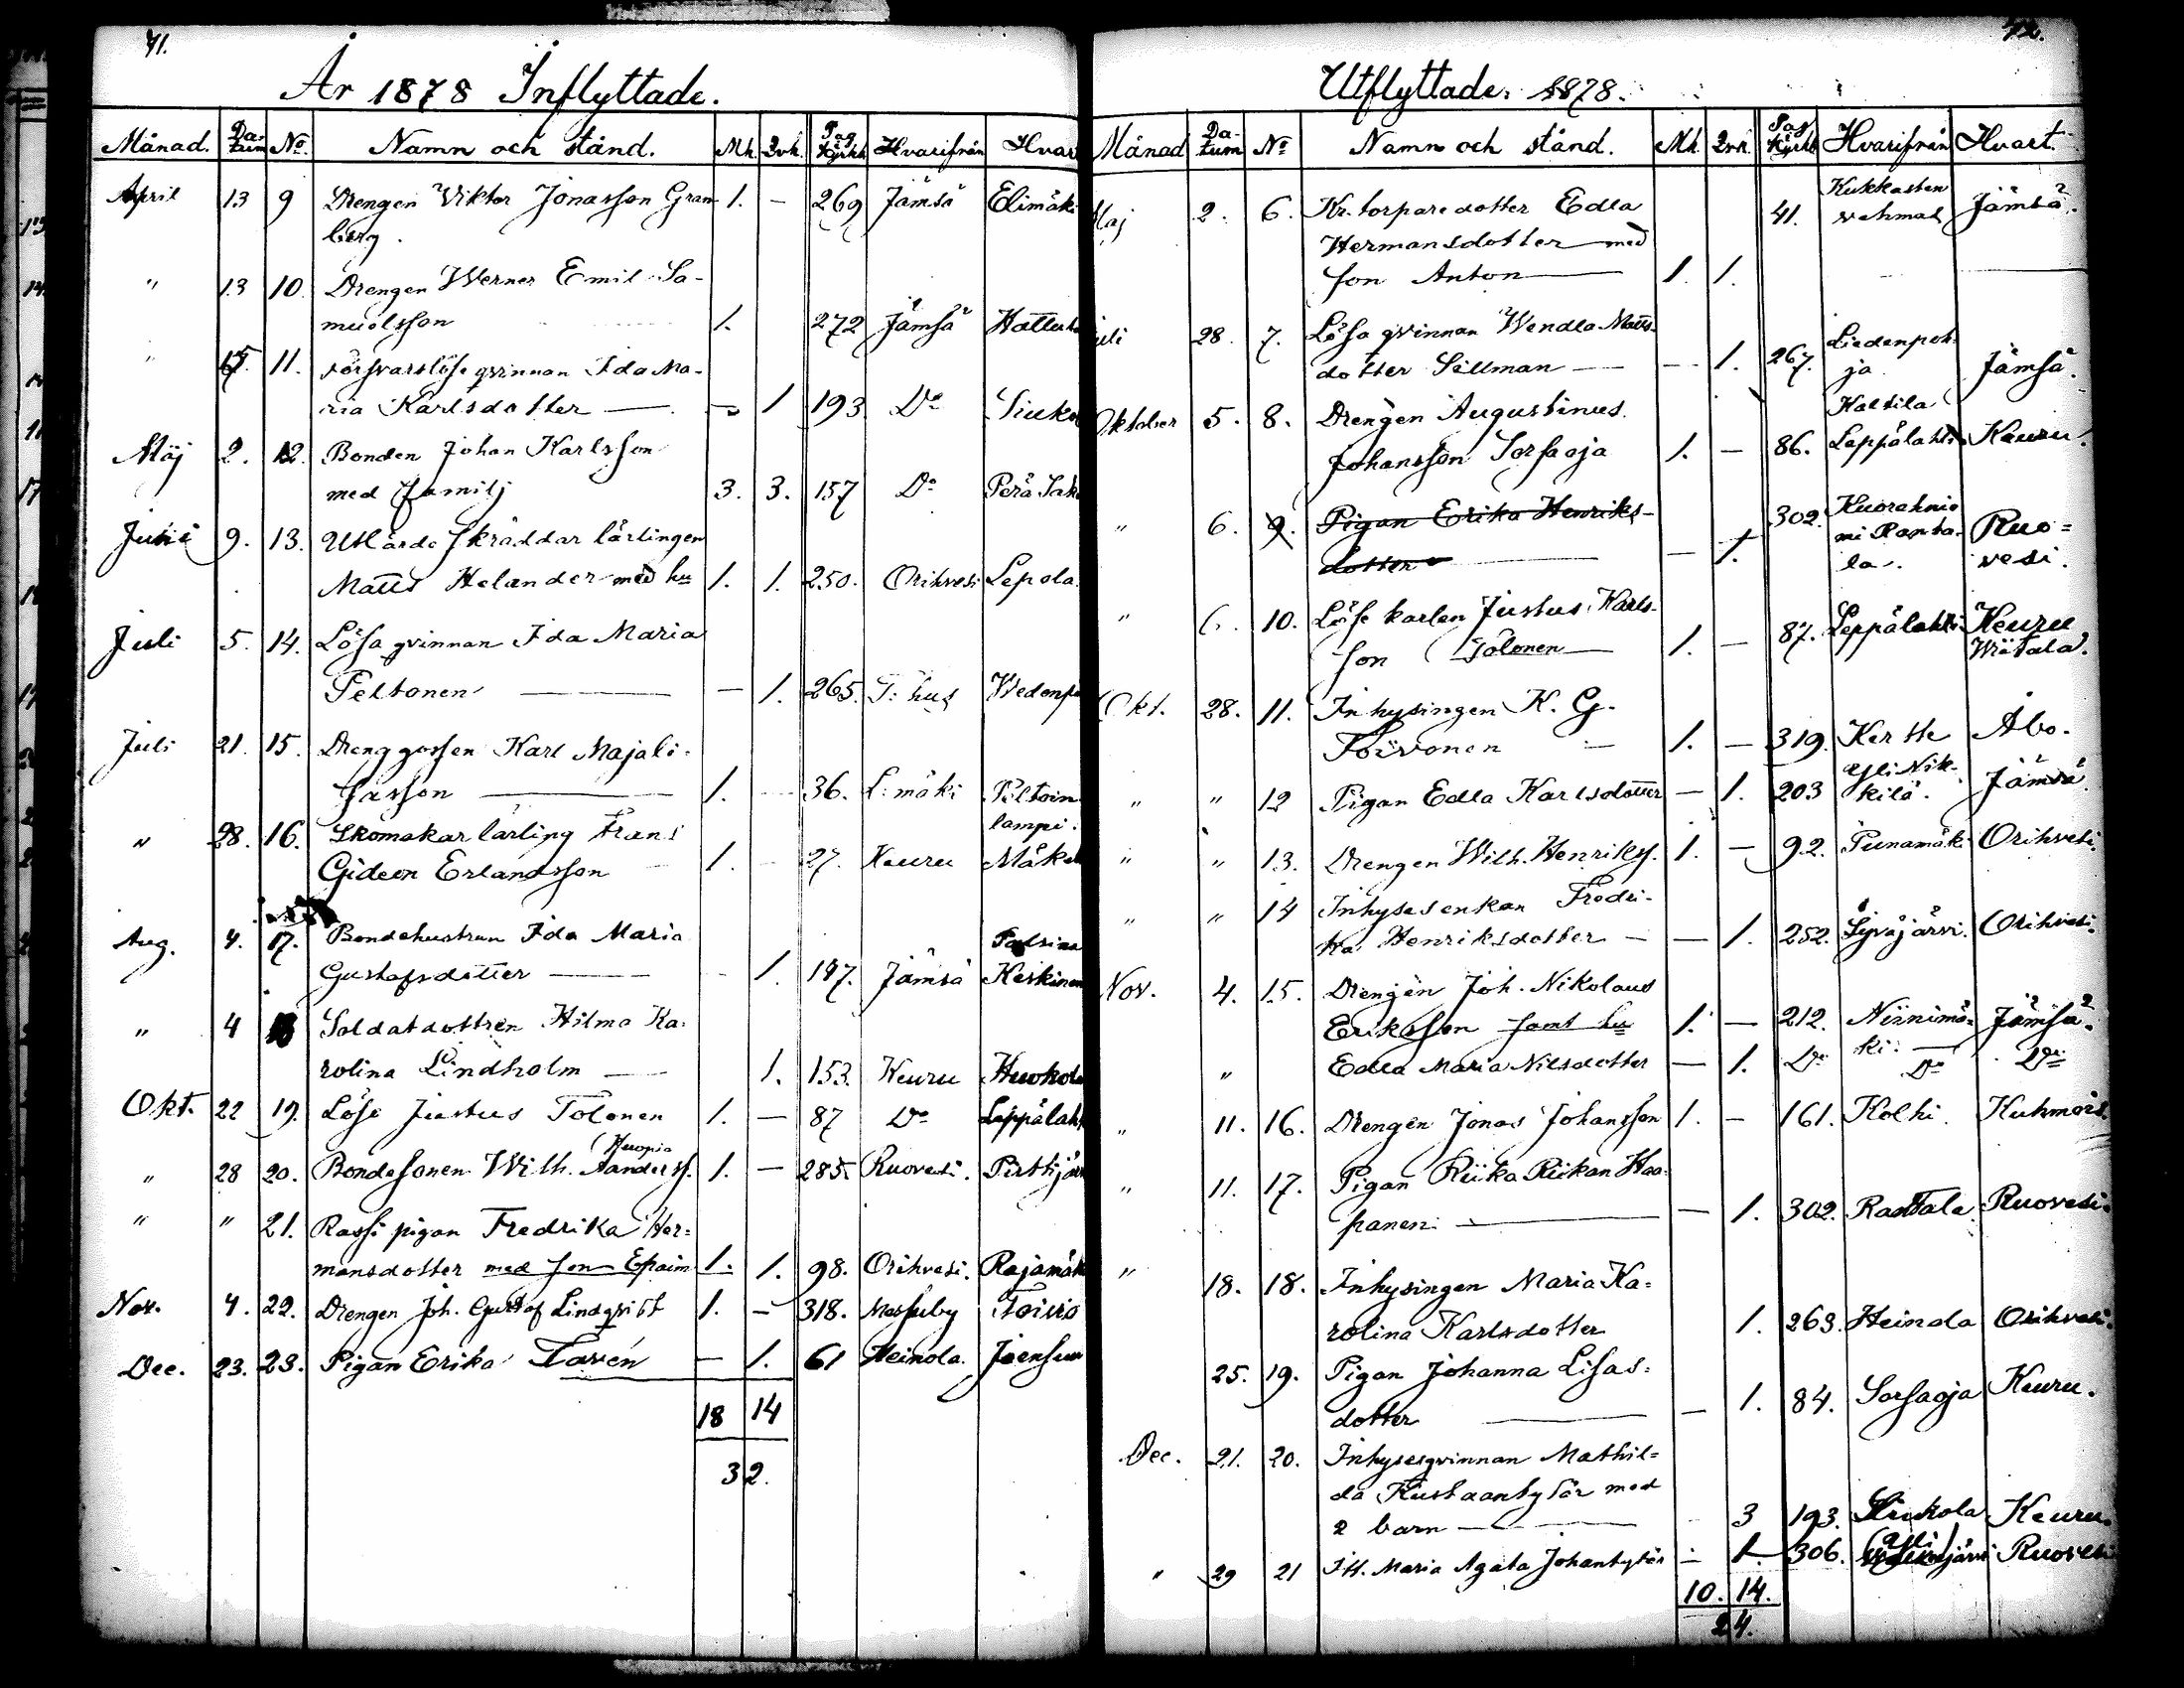 41.
År 1878 Inflyttade.
Månad. Da-tum No. Namn och stånd. Mk. Qvk. Pag Kyrkb Hvarifrån Hvar
April 13 9 Drengen Viktor Jonasson Gran- 1. - 269 Jämsä Elimäki
berg.
" 13 10 Drengen Werner Emil Sa-
muelsson 1. 272 Jämsä
" 15. 11. Försvarslösa qvinnan Ida Ma-
ria Karlsdotter — - 1 193 Do
Maj 2. 12. Bonden Johan Karlsson
med familj 3. 3. 157 Do Perä
Juni 9. 13. Utlärde skräddar lärlingen
Matts Helander med hu 1. 1. 250. Orihvesi Lepola
Juli 5. 14. Lösa qvinnan Ida Maria
Peltonen — - 1. 265. T: hus
Juli 21. 15. Drenggossen Karl Majali-
sasson — 1. - 36. L: mäki Peltoin
lampi.
" 28. 16. Skomakar lärling Frans
Gideon Erlandsson 1. - 27. Keuru
Aug. 4. 17. Bondehustrun Ida Maria
Gustafsdotter — - 1. 147. Jämsä Keskinen
" 4 18 Soldatdottren Hilma Ka-
rolina Lindholm — 1. 153. Keuru
Okt. 22 19. Löse Justus Tolonen 1. - 87 Do Leppälah
Kuopia
" 28 20. Bondesonen Wilh. Aanderss. 1. - 285. Ruovesi.
" " 21. Rassi pigan Fredrika Her=
mansdotter med son Efraim 1. 1. 98. Orihvesi. Rajamäk
Nov. 4. 22. Drengen Joh. Gustaf Lindqvist 1. - 318. Messuby Toivio
Dec. 23. 23. Pigan Erika Tavén - 1. 61 Heinola. Joensuu
18 14
32.
42.
Utflyttade. 1878.
Månad Da-tum No Namn och stånd. Mk. Qvk. Pag Kyrkb Hvarifrån Hvart.
Maj 2. 6. Kr. torparedotter Edla 41. Kukkasten vahmas Jämsä.
Hermansdotter med
son Anton — 1. 1.
uli 28. 7. Lösa qvinnan Wendla Matts-
dotter Sillman — - 1. 267. Liedenpoh-
ja Jämsä.
Oktober 5. 8. Drengen Augustinus Kaltila
Johansson Sorsaoja 1. - 86. Leppälahti Keuru.
" 6. 9. Pigan Erika Henriks- 302. Kuorahnie
dotter — - 1. mi Ranta- Ruo=
la. vesi.
" 6. 10. Löse karlen Justus Karls- 87. Leppälahti Keuru
son Tolonen — 1. -
Okt. 28. 11. Inhysingen K. G.
Toivonen — 1. - 319. Kertte Åbo.
" " 12 Pigan Edla Karlsdotter - 1. 203 Yli Nik-
kilä. Jämsä.
" " 13. Drengen Wilh. Henrikss. 1. - 92. Punamäki Orihvesi.
" " 14 Inhysesenkan Fredri-
ka Henriksdotter — - 1. 252. Syväjärvi. Orihvesi.
Nov. 4. 15. Drengen Joh. Nikolaus
Eriksson samt hu 1. - 212. Niinimä= Jämsä.
ki.
" Edla Maria Nilsdotter - 1. Do Do Do
" 11. 16. Drengen Jonas Johansson 1. - 161. Kolhi. Kuhmois.
" 11. 17. Pigan Riika Riikan Haa-
panen — - 1. 302. Rantala. Ruovesi.
" 18. 18. Inhysingen Maria Ka=
rolina Karlsdotter 1. 263. Heinola Orihvesi.
25. 19. Pigan Johanna Lisas=
dotter — - 1. 84. Sorsaoja Keuru.
Dec. 21. 20. Inhysesqvinnan Mathil=
da Kustaantytär med
2 barn — - 3 193. Siukola Keuru.
" 29 21 Itt. Maria Agata Johantytär - 1. 306. Yli Ruovesi
10. 14.
24.